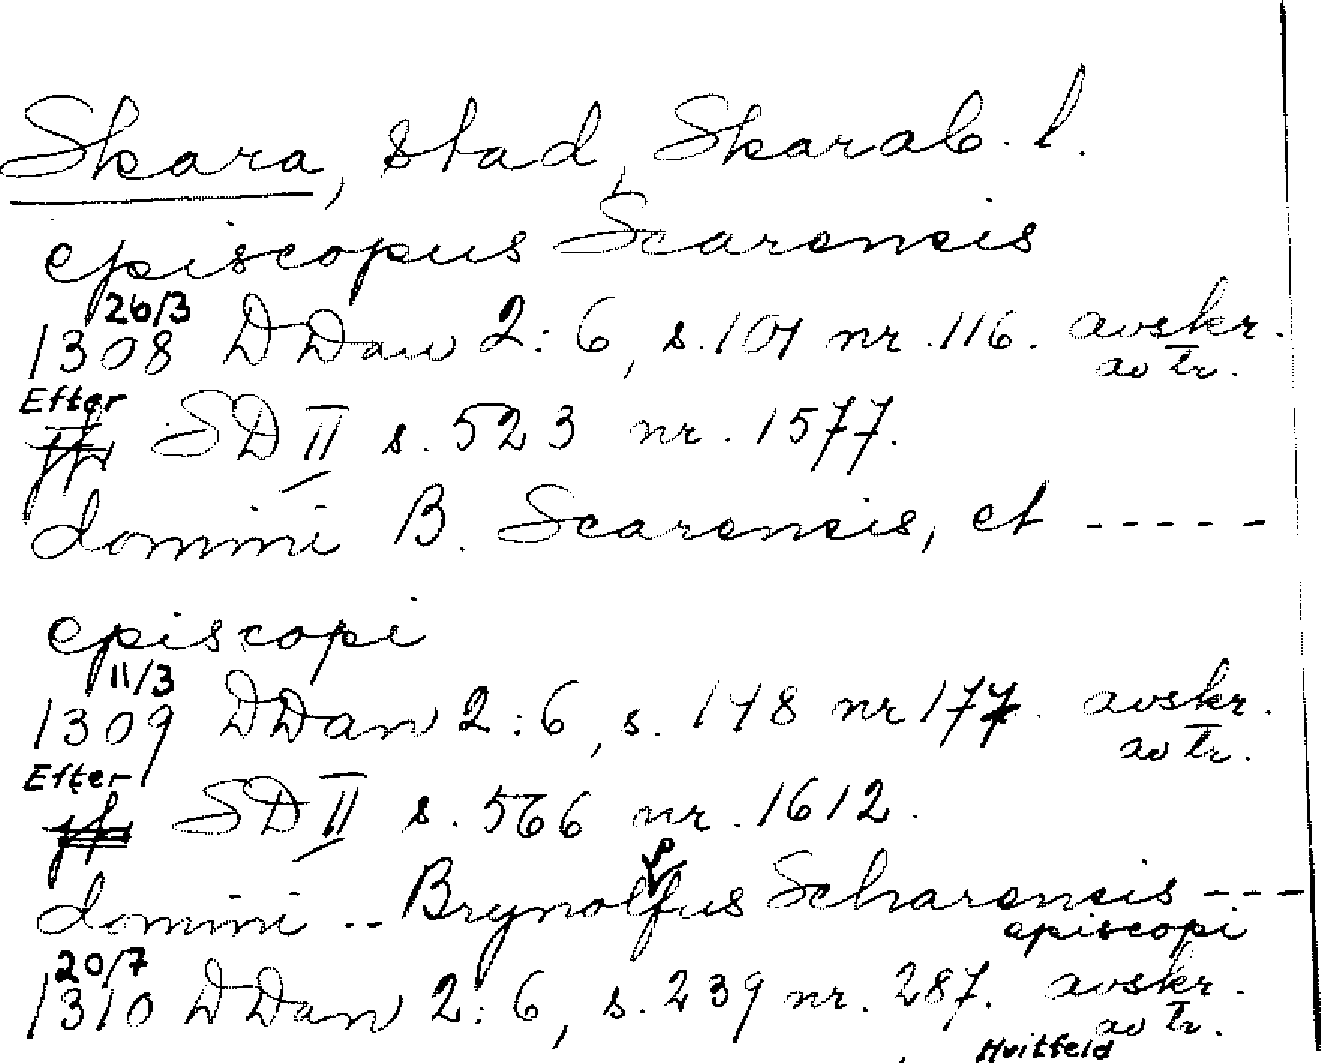 Skara, stad, Skarab. l.
episcopus Scarensis
26/3
1308 DDan 2:6, s. 101 nr. 116. avskr.
av tr.
Efter
SD II s. 523 nr. 1577.
domini B. Scarensis, et -----
episcopi
11/3
1309 DDan 2:6, s. 148 nr 177. avskr.
av tr.
Efter
SD II s. 566 nr. 1612.
domini .. Brynolfus Scharensis ---
episcopi
20/7
1310 DDan 2:6, s. 239 nr. 287. avskr.
av tr.
Hvitfeld